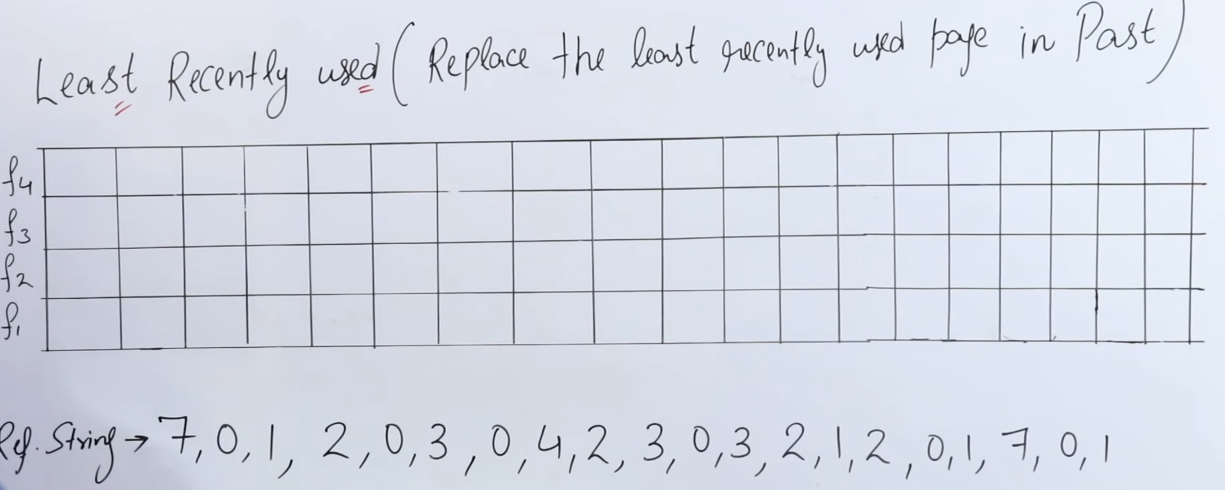 Least Recently used (Replace the least recently used page in Past)
f4
f3
f2
f1
Ref. String → 7, 0, 1, 2, 0, 3, 0, 4, 2, 3, 0, 3, 2, 1, 2, 0, 1, 7, 0, 1